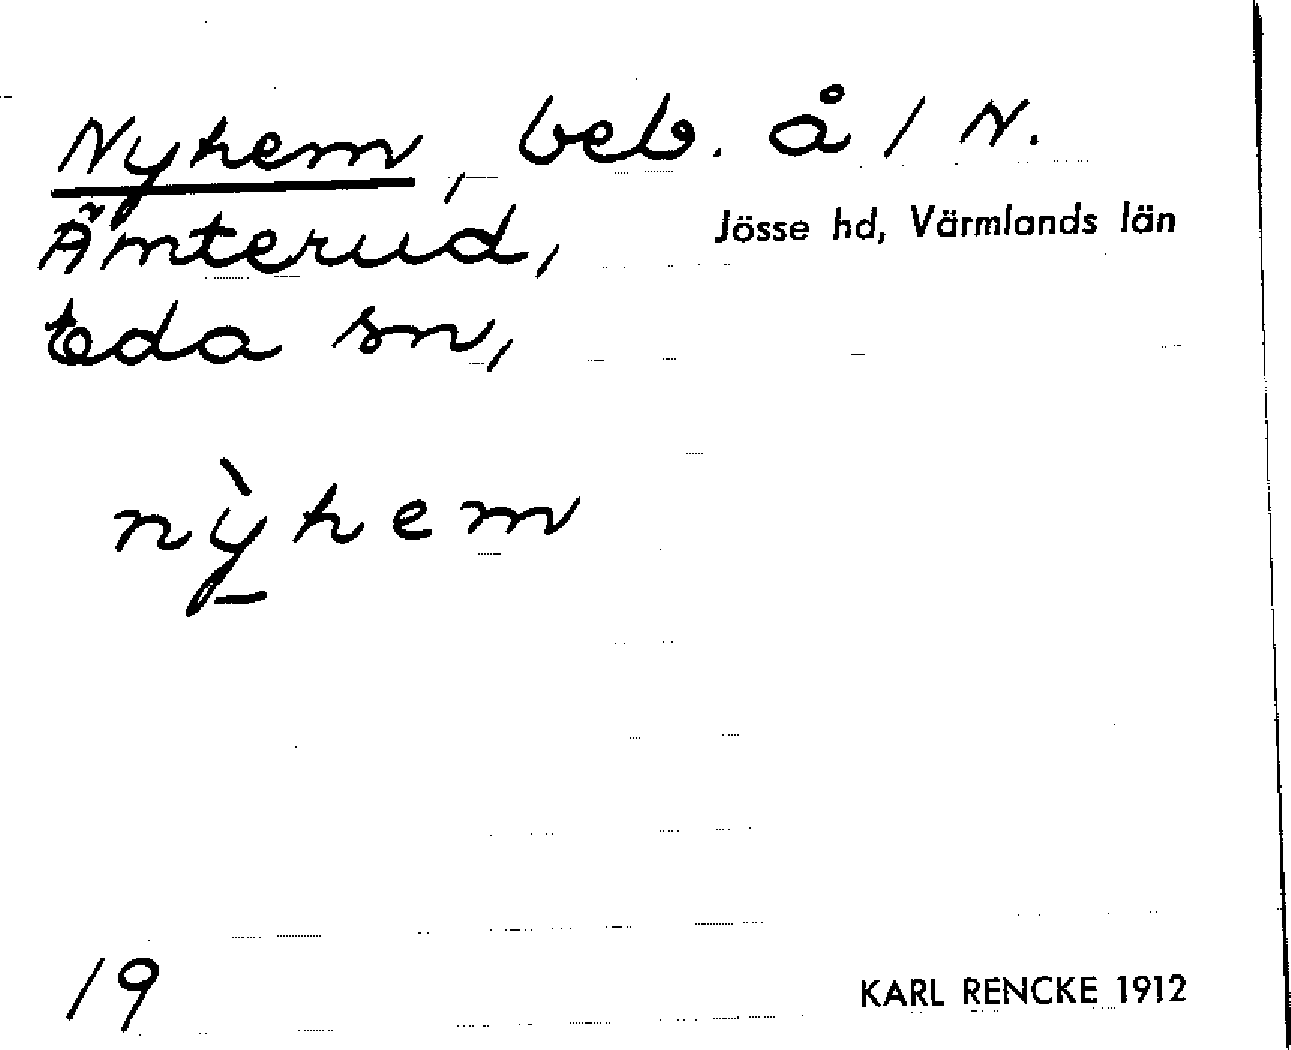 Nyhem, beb. å / N.
Ämterud, Jösse hd, Värmlands län
Eda sn,
nỳhem
19
KARL RENCKE 1912